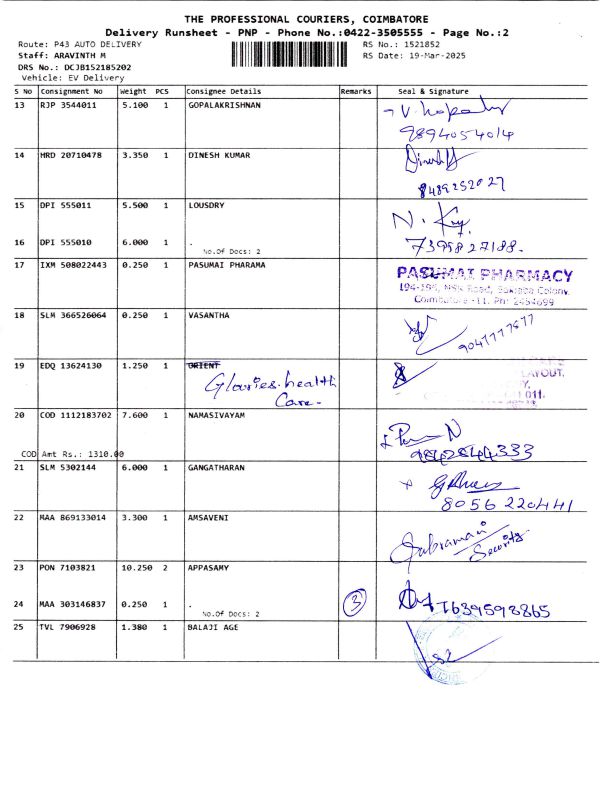 THE PROFESSIONAL COURIERS, COIMBATORE
Delivery Runsheet - PNP - Phone No.:0422-3505555 - Page No.:2
Route: P43 AUTO DELIVERY RS No.: 1521852
Staff: ARAVINTH M RS Date: 19-Mar-2025
DRS No.: DCJB152185202
Vehicle: EV Delivery
S No Consignment No Weight PCS Consignee Details Remarks Seal & Signature
13 RJP 3544011 5.100 1 GOPALAKRISHNAN
9894054014
14 HRD 20710478 3.350 1 DINESH KUMAR
Dinesh
8489252027
15 DPI 555011 5.500 1 LOUSDRY
16 DPI 555010 6.000 1 . 7395827188.
No.Of Docs: 2
17 IXM 508022443 0.250 1 PASUMAI PHARAMA PASUMAI PHARMACY
Coimbatore -11. Ph: 2454699
18 SLM 366526064 0.250 1 VASANTHA
9047777677
19 EDQ 13624130 1.250 1 ORIENT
Glories health
Care.
LAYOUT,
011.
20 COD 1112183702 7.600 1 NAMASIVAYAM
COD Amt Rs.: 1310.00 9842844333
21 SLM 5302144 6.000 1 GANGATHARAN
8056220441
22 MAA 869133014 3.300 1 AMSAVENI
Subramani
Security
23 PON 7103821 10.250 2 APPASAMY
24 MAA 303146837 0.250 1 . 3
No.Of Docs: 2
25 TVL 7906928 1.380 1 BALAJI AGE